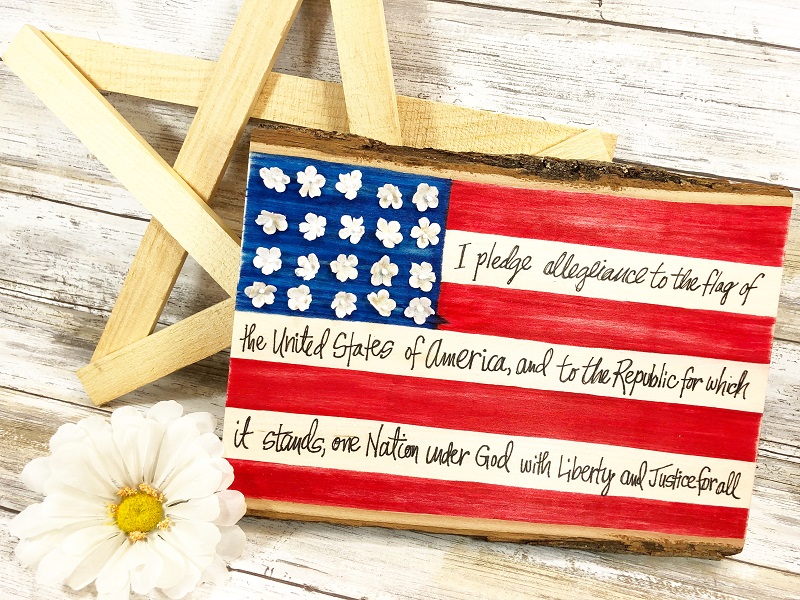 I pledge allegliance to the flag of
the United States of America, and to the Republic for which
it stands, one Nation under God with Liberty and Justice for all